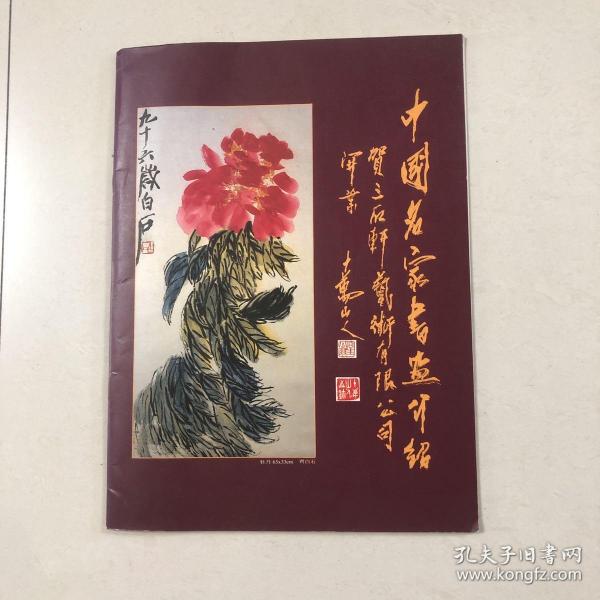 中國名家書画介紹
賀三石軒藝術有限公司
開業
十萬山人
九十六歲白石
牡丹 65x33cm 齊白石
孔夫子旧書网
www.kongfz.com